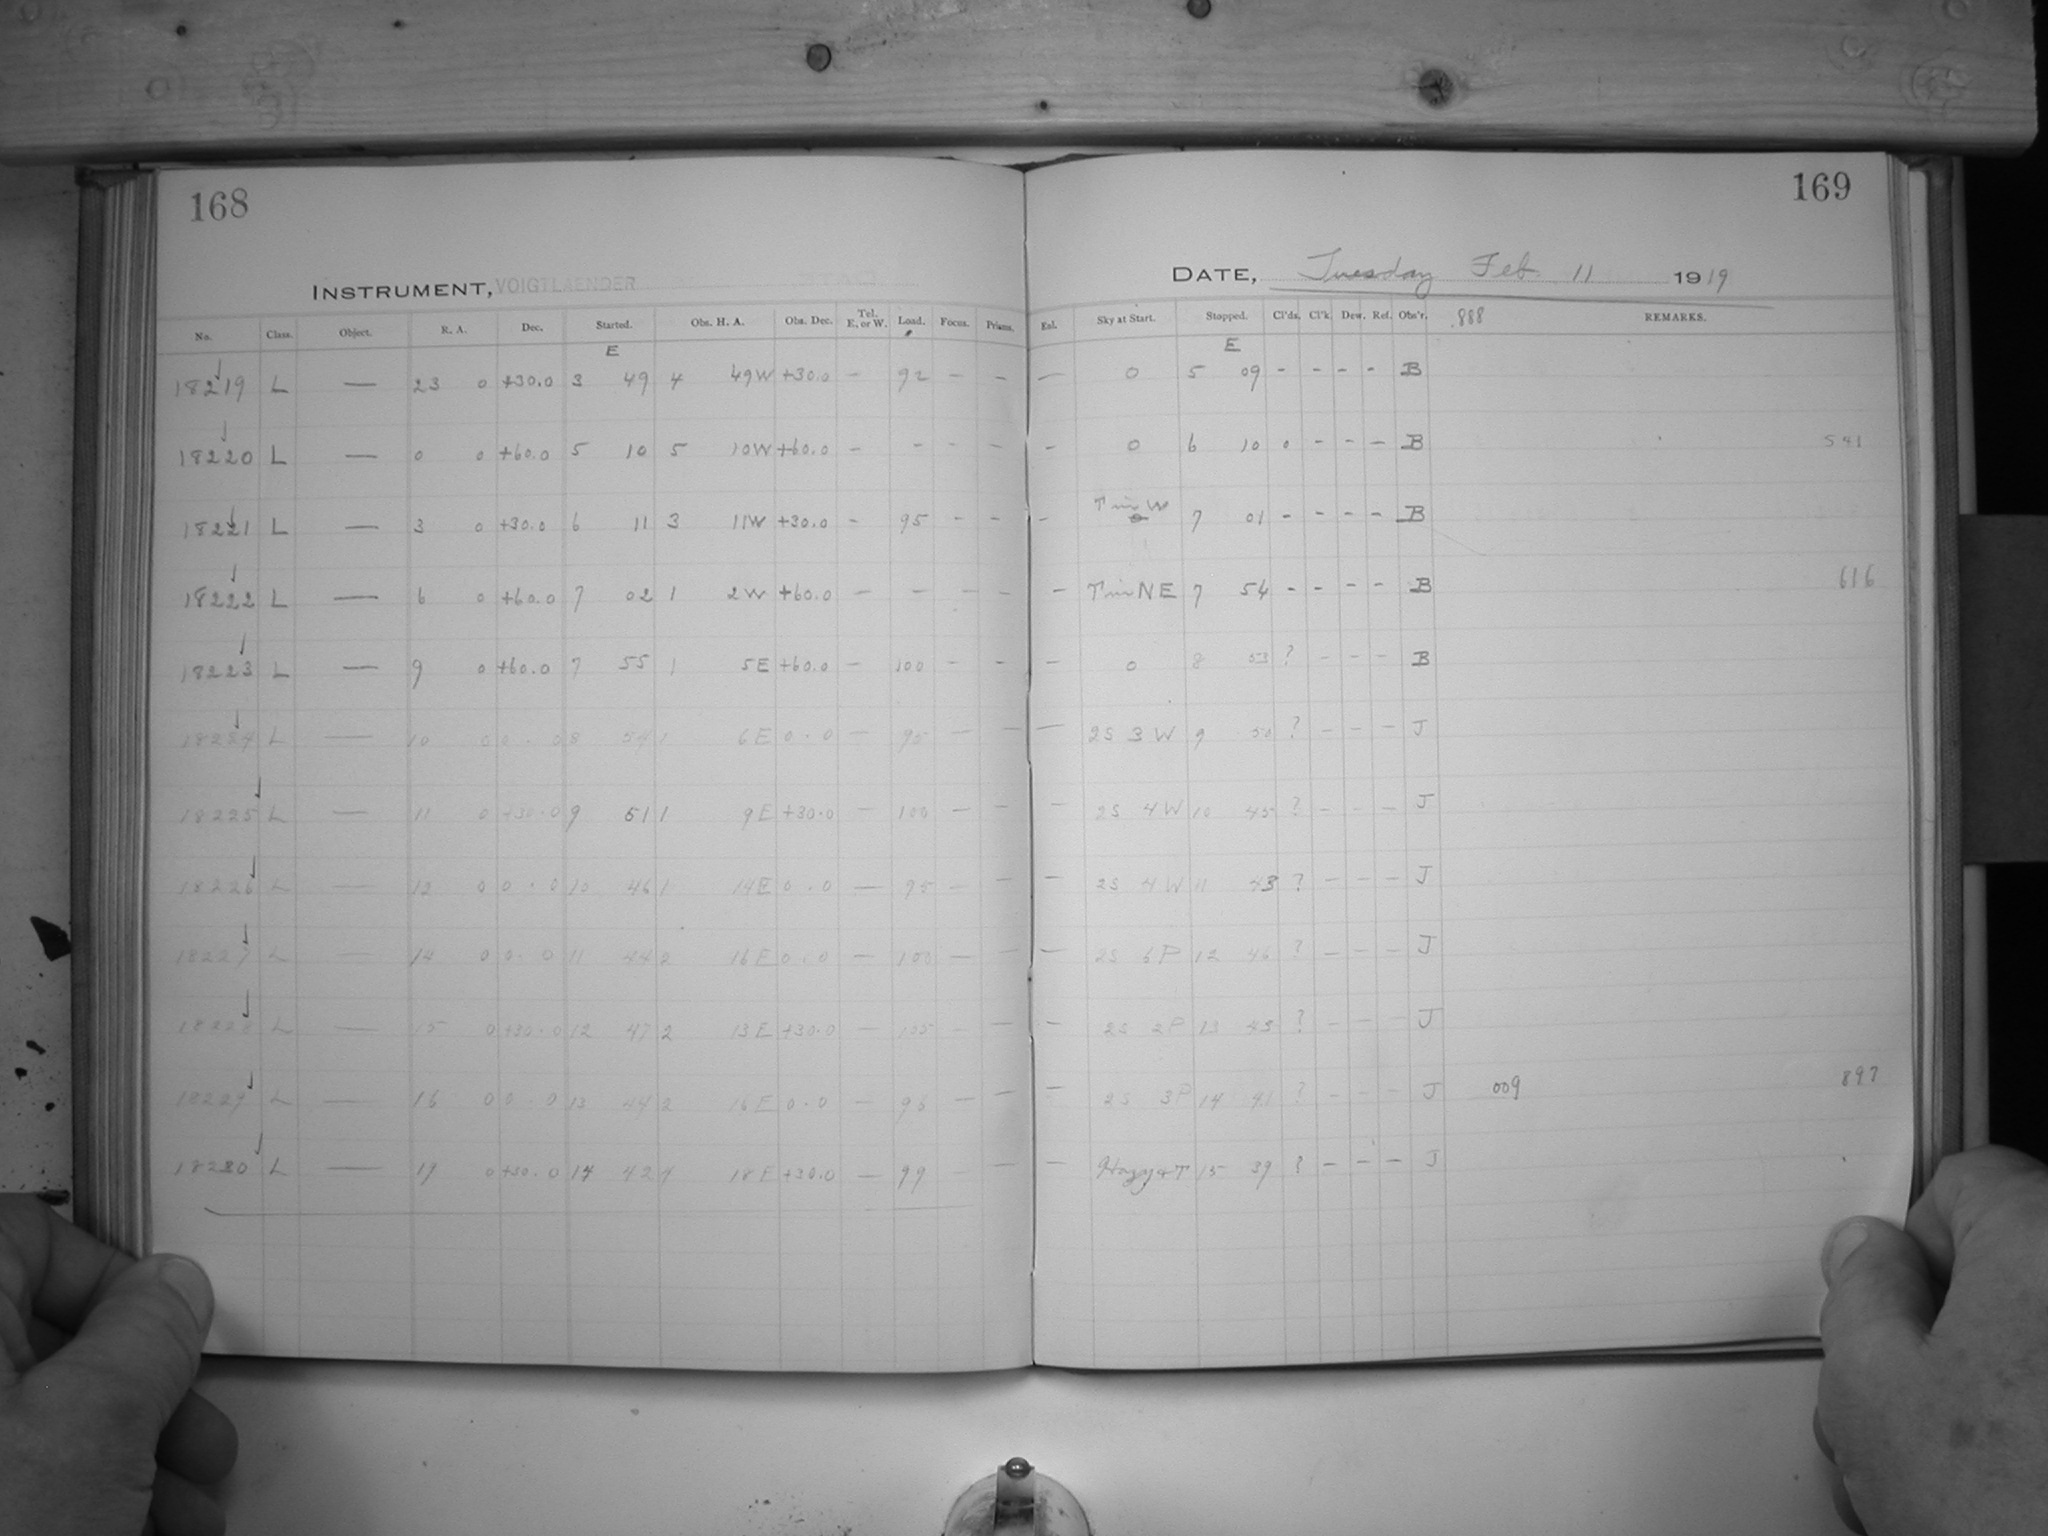 168
169
INSTRUMENT, VOIGTLAENDER
DATE, Tuesday Feb. 11 1919
No. Class. Object. R. A. Dec. Started. Obs. H. A. Obs. Dec. Tel. E. or W. Load. Focus. Prisms. Enl. Sky at Start. Stopped. Cl'ds. Cl'k. Dew. Ref. Obs'r. 888 REMARKS.
E E
18219 L — 23 0 +30.0 3 49 4 49W +30.0 - 92 - - - 0 5 09 - - - - B
18220 L — 0 0 +60.0 5 10 5 10W +60.0 - - - - - 0 6 10 0 - - - B 541
18221 L — 3 0 +30.0 6 11 3 11W +30.0 - 95 - - - T in W 7 01 - - - - B
18222 L — 6 0 +60.0 7 02 1 2W +60.0 - - - - - T in NE 7 54 - - - - B 616
18223 L — 9 0 +60.0 7 55 1 5E +60.0 - 100 - - - 0 8 53 ? - - - B
18224 L — 10 0 0.0 8 54 1 6E 0.0 - 95 - - - 2S 3W 9 50 ? - - - J
18225 L — 11 0 +30.0 9 51 1 9E +30.0 - 100 - - - 2S 4W 10 45 ? - - - J
18226 L — 12 0 0.0 10 46 1 14E 0.0 - 95 - - - 2S 4W 11 43 ? - - - J
18227 L — 14 0 0.0 11 44 2 16E 0.0 - 100 - - - 2S 6P 12 46 ? - - - J
18228 L — 15 0 +30.0 12 47 2 13E +30.0 - 105 - - - 2S 2P 13 43 ? - - - J
18229 L — 16 0 0.0 13 44 2 16E 0.0 - 96 - - - 2S 3P 14 41 ? - - - J 009 897
18230 L — 19 0 +30.0 14 42 4 18E +30.0 - 99 - - Hazy & T 15 39 ? - - - J